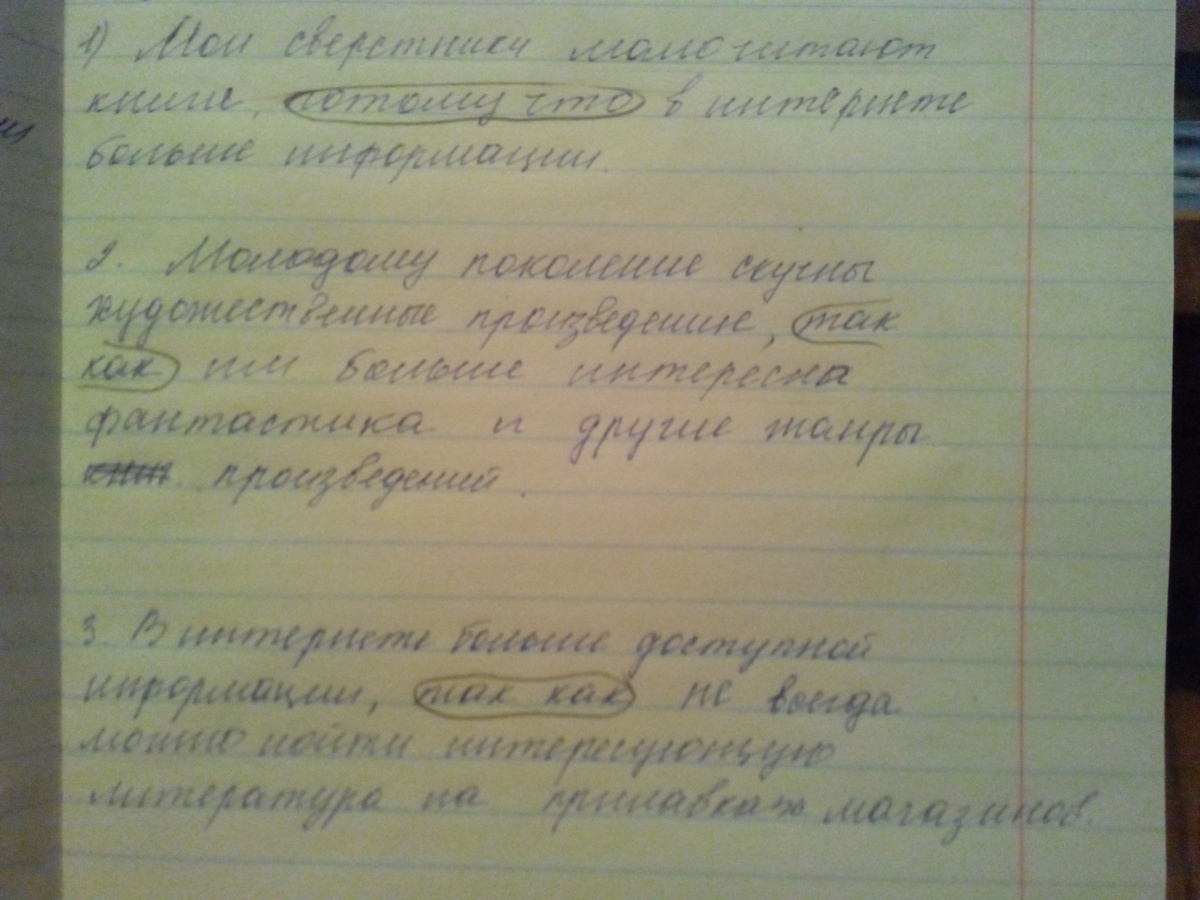 1) Мои сверстники мало читают
книги, потому что в интернете
больше информации.
2. Молодому поколение скучны
художественные произведение, так
как им больше интересна
фантастика и другие жанры
произведений.
3. В интернете больше доступной
информации, так как не всегда
можно найти интересующую
литература на прилавках магазинов.